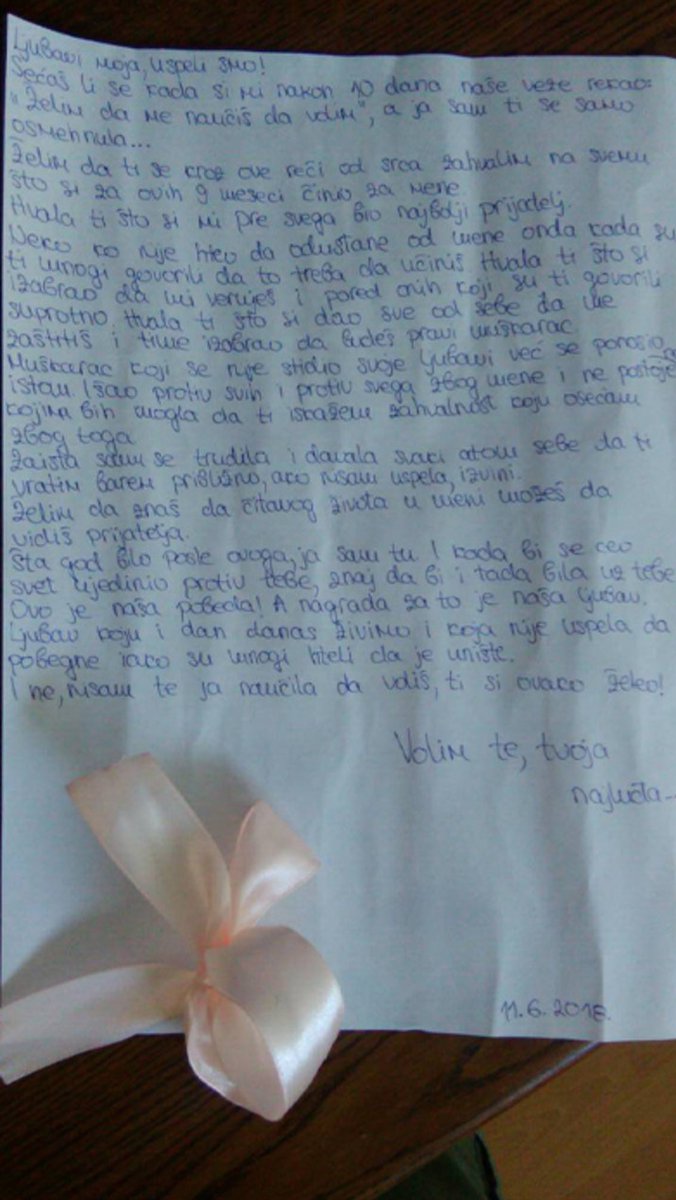 Ljubavi moja, uspeli smo!
Sećaš li se kada si mi nakon 10 dana naše veze rekao:
"Želim da me naučiš da volim", a ja sam ti se samo
osmehnula...
Želim da ti se kroz ove reči od srca zahvalim na svemu
što si za ovih 9 meseci činio za mene.
Hvala ti što si mi pre svega bio najbolji prijatelj.
Neko ko nije hteo da odustane od mene onda kada su
ti mnogi govorili da to treba da učiniš. Hvala ti što si
izabrao da mi veruješ i pored onih koji su ti govorili
suprotno. Hvala ti što si dao sve od sebe da me
zaštitiš i time izabrao da budeš pravi muškarac.
Muškarac koji se nije stidio svoje ljubavi već se ponosio
istom. Išao protiv svih i protiv svega zbog mene i ne postoje
kojima bih mogla da ti iskažem zahvalnost koju osećam
zbog toga.
Zaista sam se trudila i davala svaki atom sebe da ti
vratim barem približno, ako nisam uspela, izvini.
Želim da znaš da čitavog života u meni možeš da
vidiš prijatelja.
Šta god bilo posle ovoga, ja sam tu. I kada bi se ceo
svet ujedinio protiv tebe, znaj da bi i tada bila uz tebe.
Ovo je naša pobeda! A nagrada za to je naša ljubav.
Ljubav koju i dan danas živimo i koja nije uspela da
pobegne iako su mnogi hteli da je unište.
I ne, nisam te ja naučila da voliš, ti si ovako želeo!
Volim te, tvoja
najluđa...
11.6.2018.